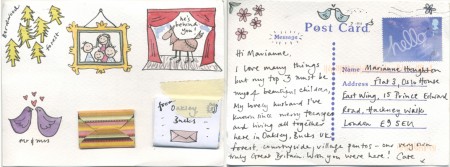 Bernwood
forest
he's
behind
you!
Mr & mrs
from
Oaksey
Bucks
Post Card
Message
hello
Hi Marianne,
I love many things
but my top 3 must be
my of beautiful children,
My lovely husband I've
known since merry teenager
and living all together
here in Oaksey, Bucks UK
forest, countryside, village pantos - our very own
truly Great Britain. Wish you were here! Cate x
Name Marianne Houghton
Address Flat 3, Oslo House
East Wing, 15 Prince Edward
Road, Hackney Wick
London E9 5EU